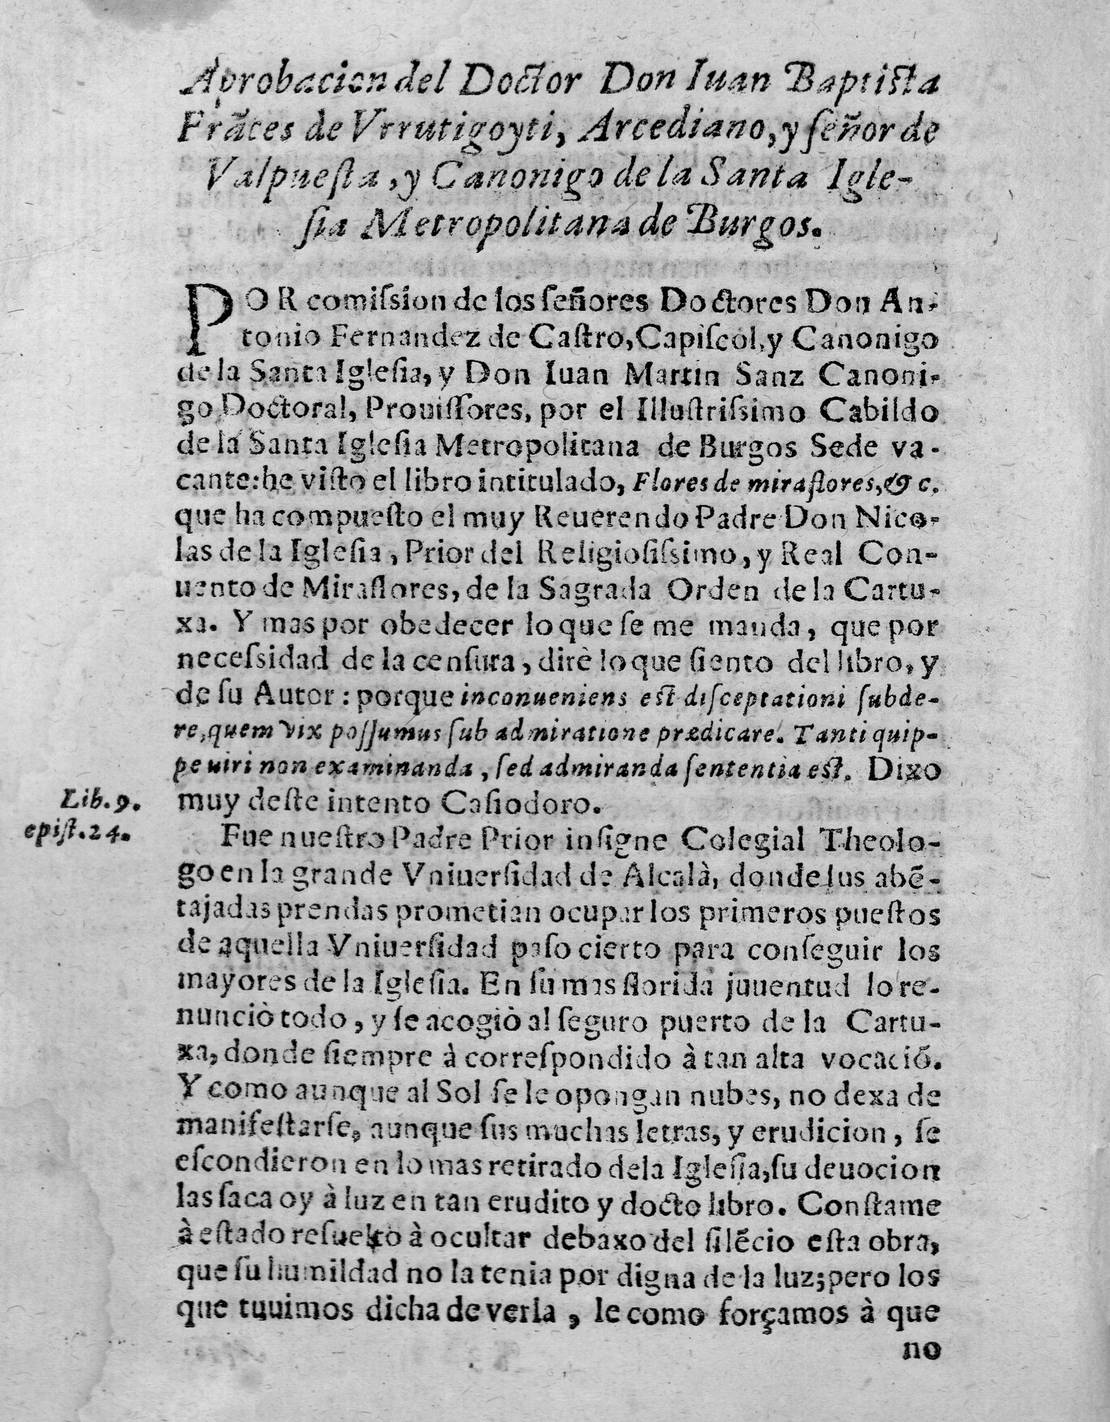 Aprobacion del Doctor Don Iuan Baptiſta
Frãces de Vrrutigoyti, Arcediano, y ſeñor de
Valpueſta, y Canonigo de la Santa Igle-
ſia Metropolitana de Burgos.
POR comiſsion de los ſeñores Doctores Don An-
tonio Fernandez de Caſtro, Capiſcol, y Canonigo
de la Santa Igleſia, y Don Iuan Martin Sanz Canoni-
go Doctoral, Prouiſſores, por el Illuſtriſsimo Cabildo
de la Santa Igleſia Metropolitana de Burgos Sede va-
cante: he viſto el libro intitulado, Flores de miraflores, & c.
que ha compueſto el muy Reuerendo Padre Don Nico-
las de la Igleſia, Prior del Religioſiſsimo, y Real Con-
uento de Miraflores, de la Sagrada Orden de la Cartu-
xa. Y mas por obedecer lo que ſe me manda, que por
neceſsidad de la cenſura, dirè lo que ſiento del libro, y
de ſu Autor: porque inconueniens eſt diſceptationi ſubde-
re, quem vix poſſumus ſub admiratione prædicare. Tanti quip-
pe uiri non examinanda, ſed admiranda ſententia eſt. Dixo
muy deſte intento Caſiodoro.
Lib. 9.
epiſt. 24.
Fue nueſtro Padre Prior inſigne Colegial Theolo-
go en la grande Vniuerſidad de Alcalà, donde ſus abẽ-
tajadas prendas prometian ocupar los primeros pueſtos
de aquella Vniuerſidad paſo cierto para conſeguir los
mayores de la Igleſia. En ſu mas florida juuentud lo re-
nunciò todo, y ſe acogiò al ſeguro puerto de la Cartu-
xa, donde ſiempre à correſpondido à tan alta vocaciõ.
Y como aunque al Sol ſe le opongan nubes, no dexa de
manifeſtarſe, aunque ſus muchas letras, y erudicion, ſe
eſcondieron en lo mas retirado dela Igleſia, ſu deuocion
las ſaca oy à luz en tan erudito y docto libro. Conſtame
à eſtado reſuelto à ocultar debaxo del ſilẽcio eſta obra,
que ſu humildad no la tenia por digna de la luz; pero los
que tuuimos dicha de verla, le como forçamos à que
no